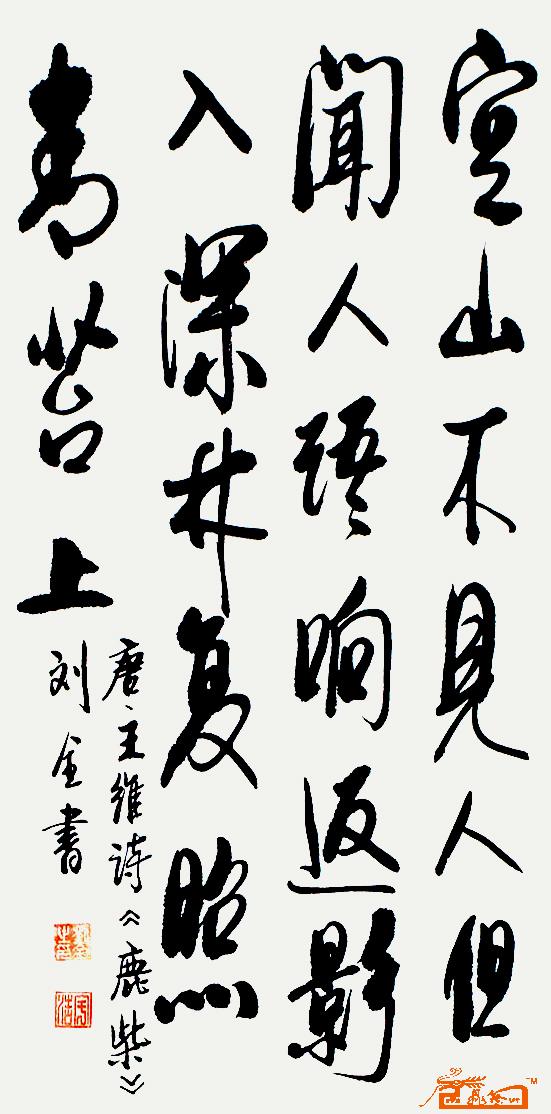 空山不見人但
聞人語响返影
入深林复照
青苔上
唐·王維詩《鹿柴》
刘金书